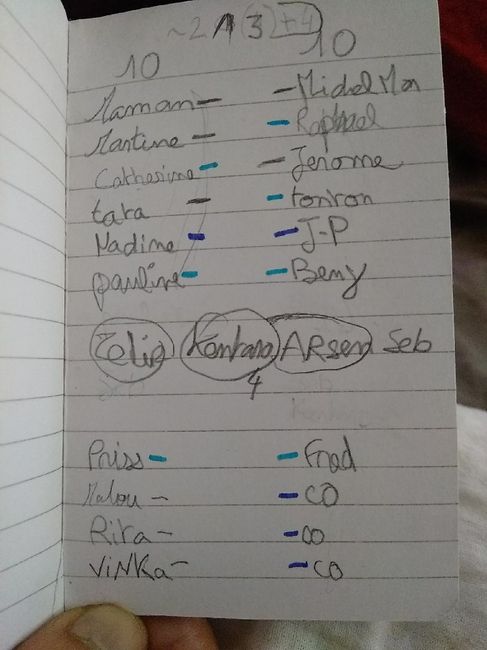 10 10
Maman - - Michel Mon
Martine - - Raphael
Catherine - - Jerome
tara - - tonton
Nadine - - J-P
pauline - - Beny
Kentaro ARsen Seb
4
Priss - - Fred
Malou - - CO
Rita - - CO
ViNKa - - CO